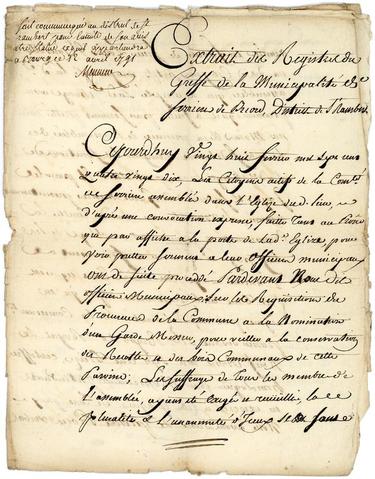 fait communiqué au district de St
rambert pour
a avril 1791
Extrait des Registres du
Greffe de la Municipalité de
Serrieu de Briord, District de St Rambert
Cejourdhuy Vingt huit fevrier mil Sept cent
quatre vingt dix, Les Citoyens actifs de la Comté
de Serrieu assemblés dans l'Eglise dud. lieu, en
d'apre une convocation expresse, faitte tant au
que par affiche a la porte de lad.e Eglise, pour
voir pretter serment a leur Officiers municipaux
ont de suite procedé Pardevant Nous dit
officiers Municipaux, sur les Requisitions du
Procureur de la Commune a la Nomination
d'un Garde Messeu, pour veiller a la conservation
des Recoltes et des bois Communaux de cette
Paroisse, Les suffrages de tous les membres de
l'assemblée, ayant été exigé et recueillis, la
pluralité et l'unanimité d'Iceux